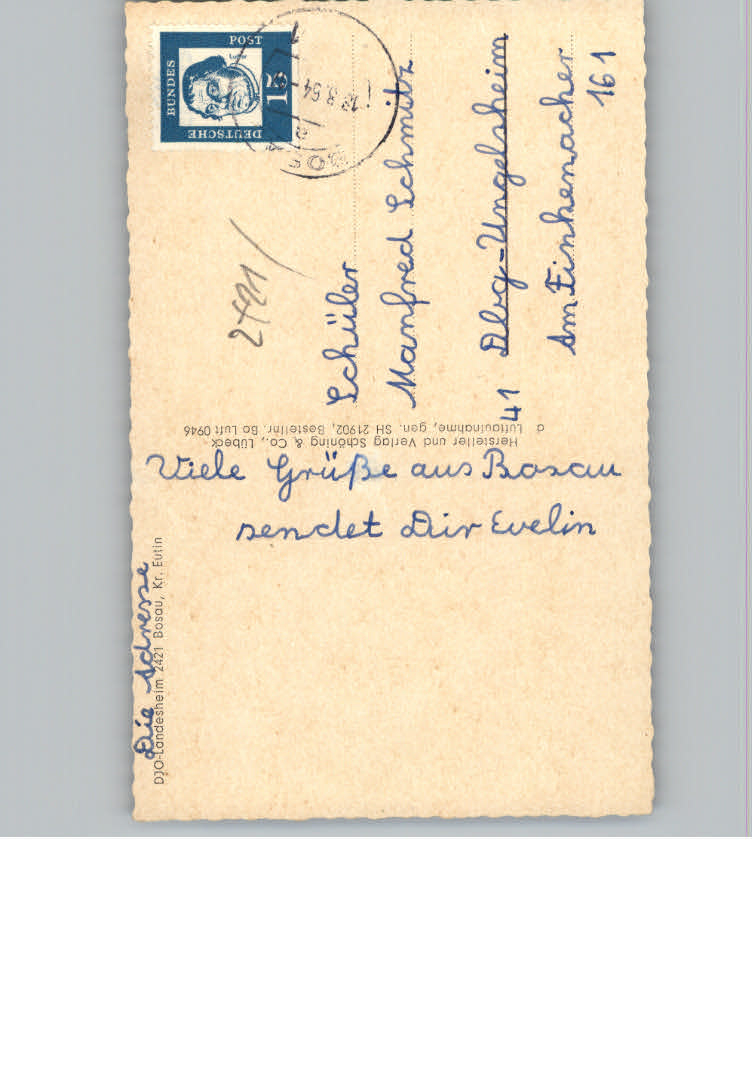 Viele Grüße aus Bosau
sendet Dir Evelin
Die Adresse
DJO-Landesheim 2421 Bosau, Kr. Eutin
Hersteller und Verlag Schöning & Co., Lübeck
d Luftaufnahme, gen. SH 21902, Bestellnr. Bo Luft 0946
DEUTSCHE
BUNDES
POST
Luther
15
Schüler
Manfred Schmitz
41 Dbg-Ungelsheim
Am Finkenacher
161